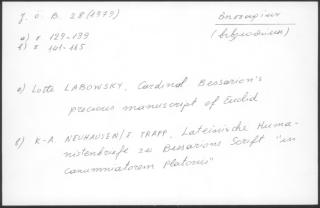 J. Ö. B. 28 (1979)
a) σ 129-139
b) σ 141-165
Βησσαρίων
a) Lotte LABOWSKY, Cardinal Bessarion's
precious manuscript of Euclid
b) K-A NEUHAUSEN/E TRAPP, Lateinische Huma-
nistenbriefe zu Bessarions Scrift "in
calumniatorem Platonis"